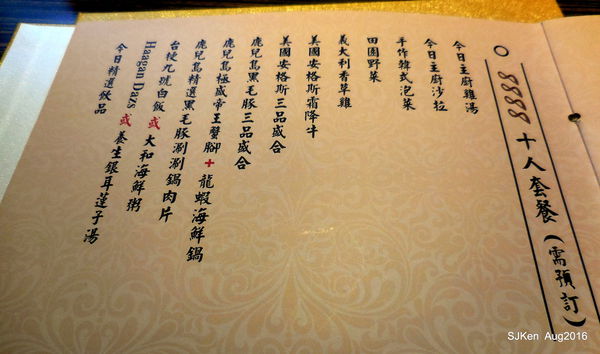 8888 十人套餐(需預訂)
今日主廚雞湯
今日主廚沙拉
手作韓式泡菜
田園野菜
義大利香草雞
美國安格斯霜降牛
美國安格斯三品盛合
鹿兒島黑毛豚三品盛合
鹿兒島極盛帝王蟹腳+龍蝦海鮮鍋
鹿兒島精選黑毛豚涮涮鍋肉片
台梗九號白飯或大和海鮮粥
Haagan Dazs或養生銀耳蓮子湯
今日精選飲品
SJKen Aug2016